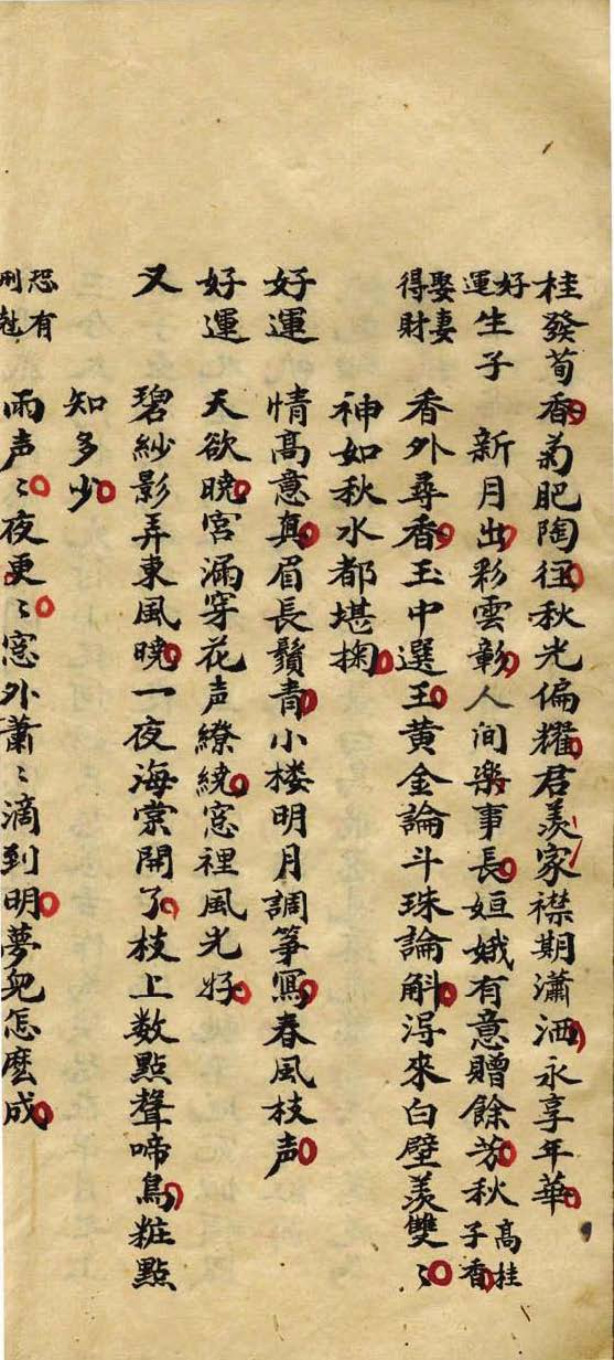 桂發荀香菊肥陶徑秋光偏耀君羨家襟期瀟洒永享年華
好運生子 新月出彩雲彰人间楽事長姮娥有意贈餘芬秋高桂子香
娶妻得財 香外尋香玉中選玉黄金論斗珠論斛淂來白璧羨雙〻
神如秋水都堪掬
好運 情高意真眉長鬢青小楼明月調箏寫春風枝声
好運 天欲曉宮漏穿花声繚繞窓裡風光好
又 碧紗影弄東風曉一夜海棠開了枝上数點聲啼鳥粧點
知多少
恐有刑尅 雨声〻夜更〻窓外蕭〻滴到明夢皃怎麽成